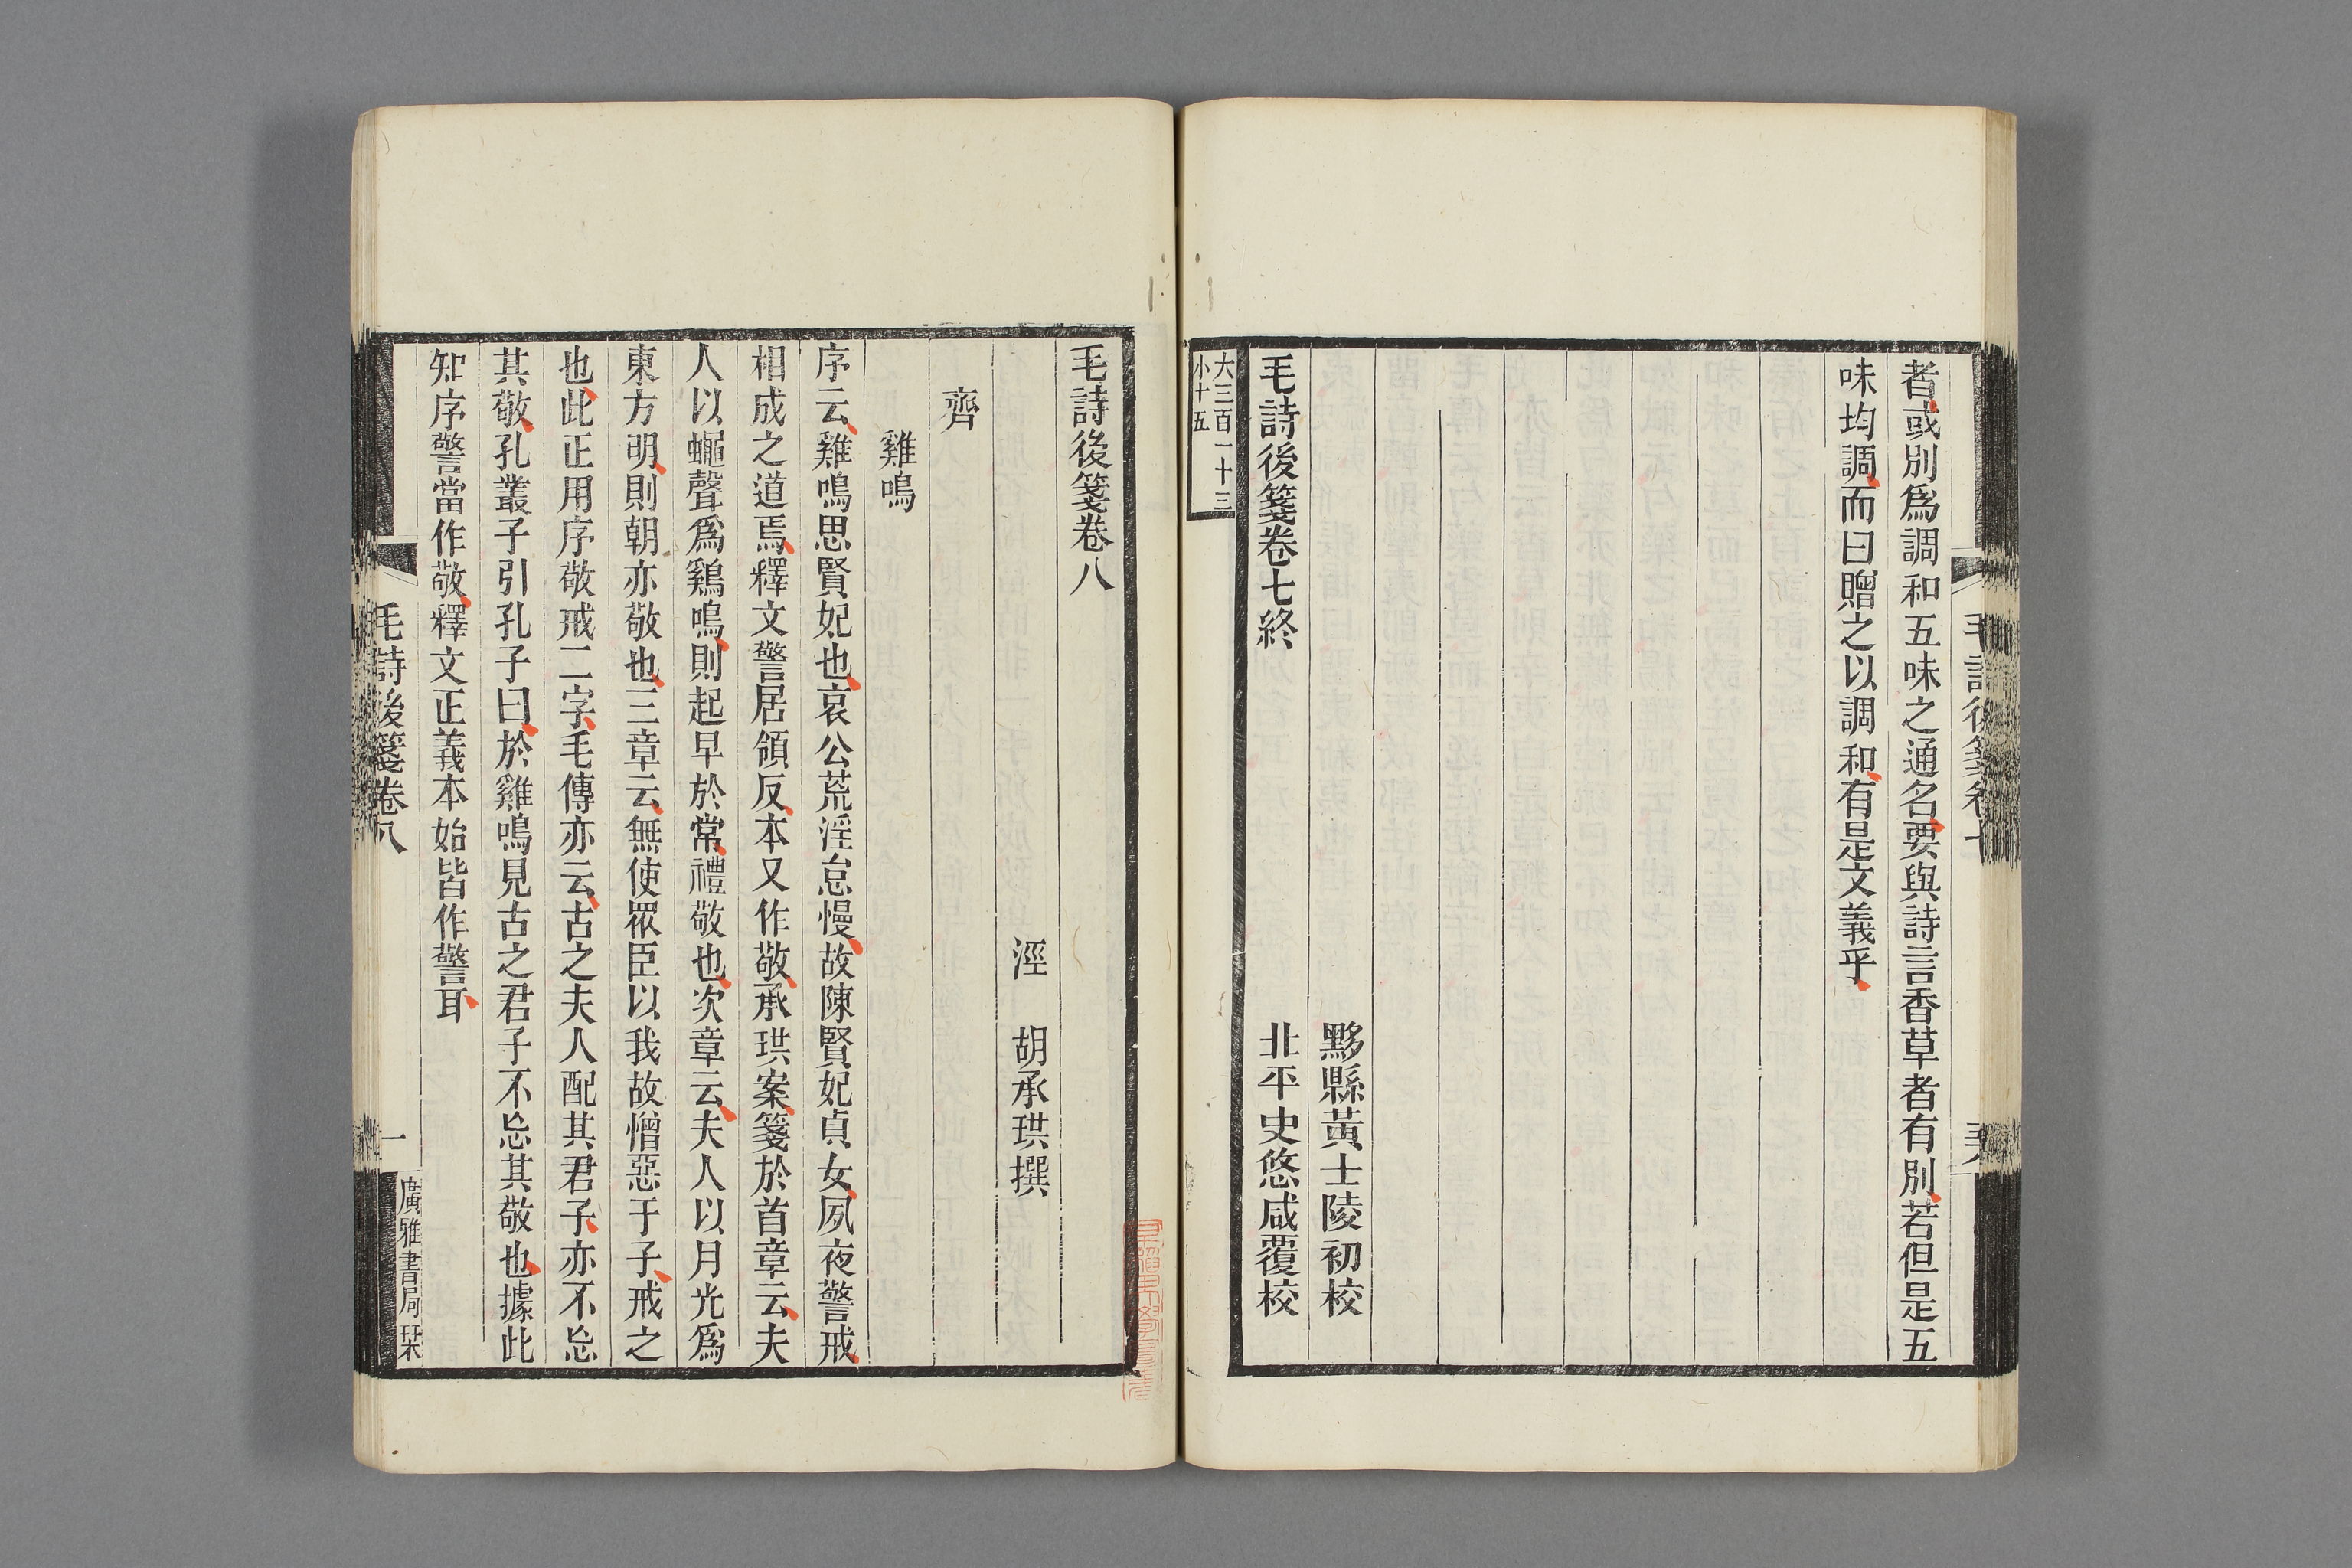 者或別爲調和五味之通名要與詩言香草者有別若但是五
味均調而曰贈之以調和有是文義乎
黟縣黃士陵初校
毛詩後箋卷七終
北平史悠咸覆校
大三百一十三
小十五
毛詩後箋卷八
涇 胡承珙撰
齊
雞鳴
序云雞鳴思賢妃也哀公荒淫怠慢故陳賢妃貞女夙夜警戒
相成之道焉釋文警居領反本又作敬承珙案箋於首章云夫
人以蠅聲爲鷄鳴則起早於常禮敬也次章云夫人以月光爲
東方明則朝亦敬也三章云無使眾臣以我故憎惡于子戒之
也此正用序敬戒二字毛傳亦云古之夫人配其君子亦不忘
其敬孔叢子引孔子曰於雞鳴見古之君子不忘其敬也據此
知序警當作敬釋文正義本始皆作警耳
毛詩後箋卷八
一
廣雅書局栞